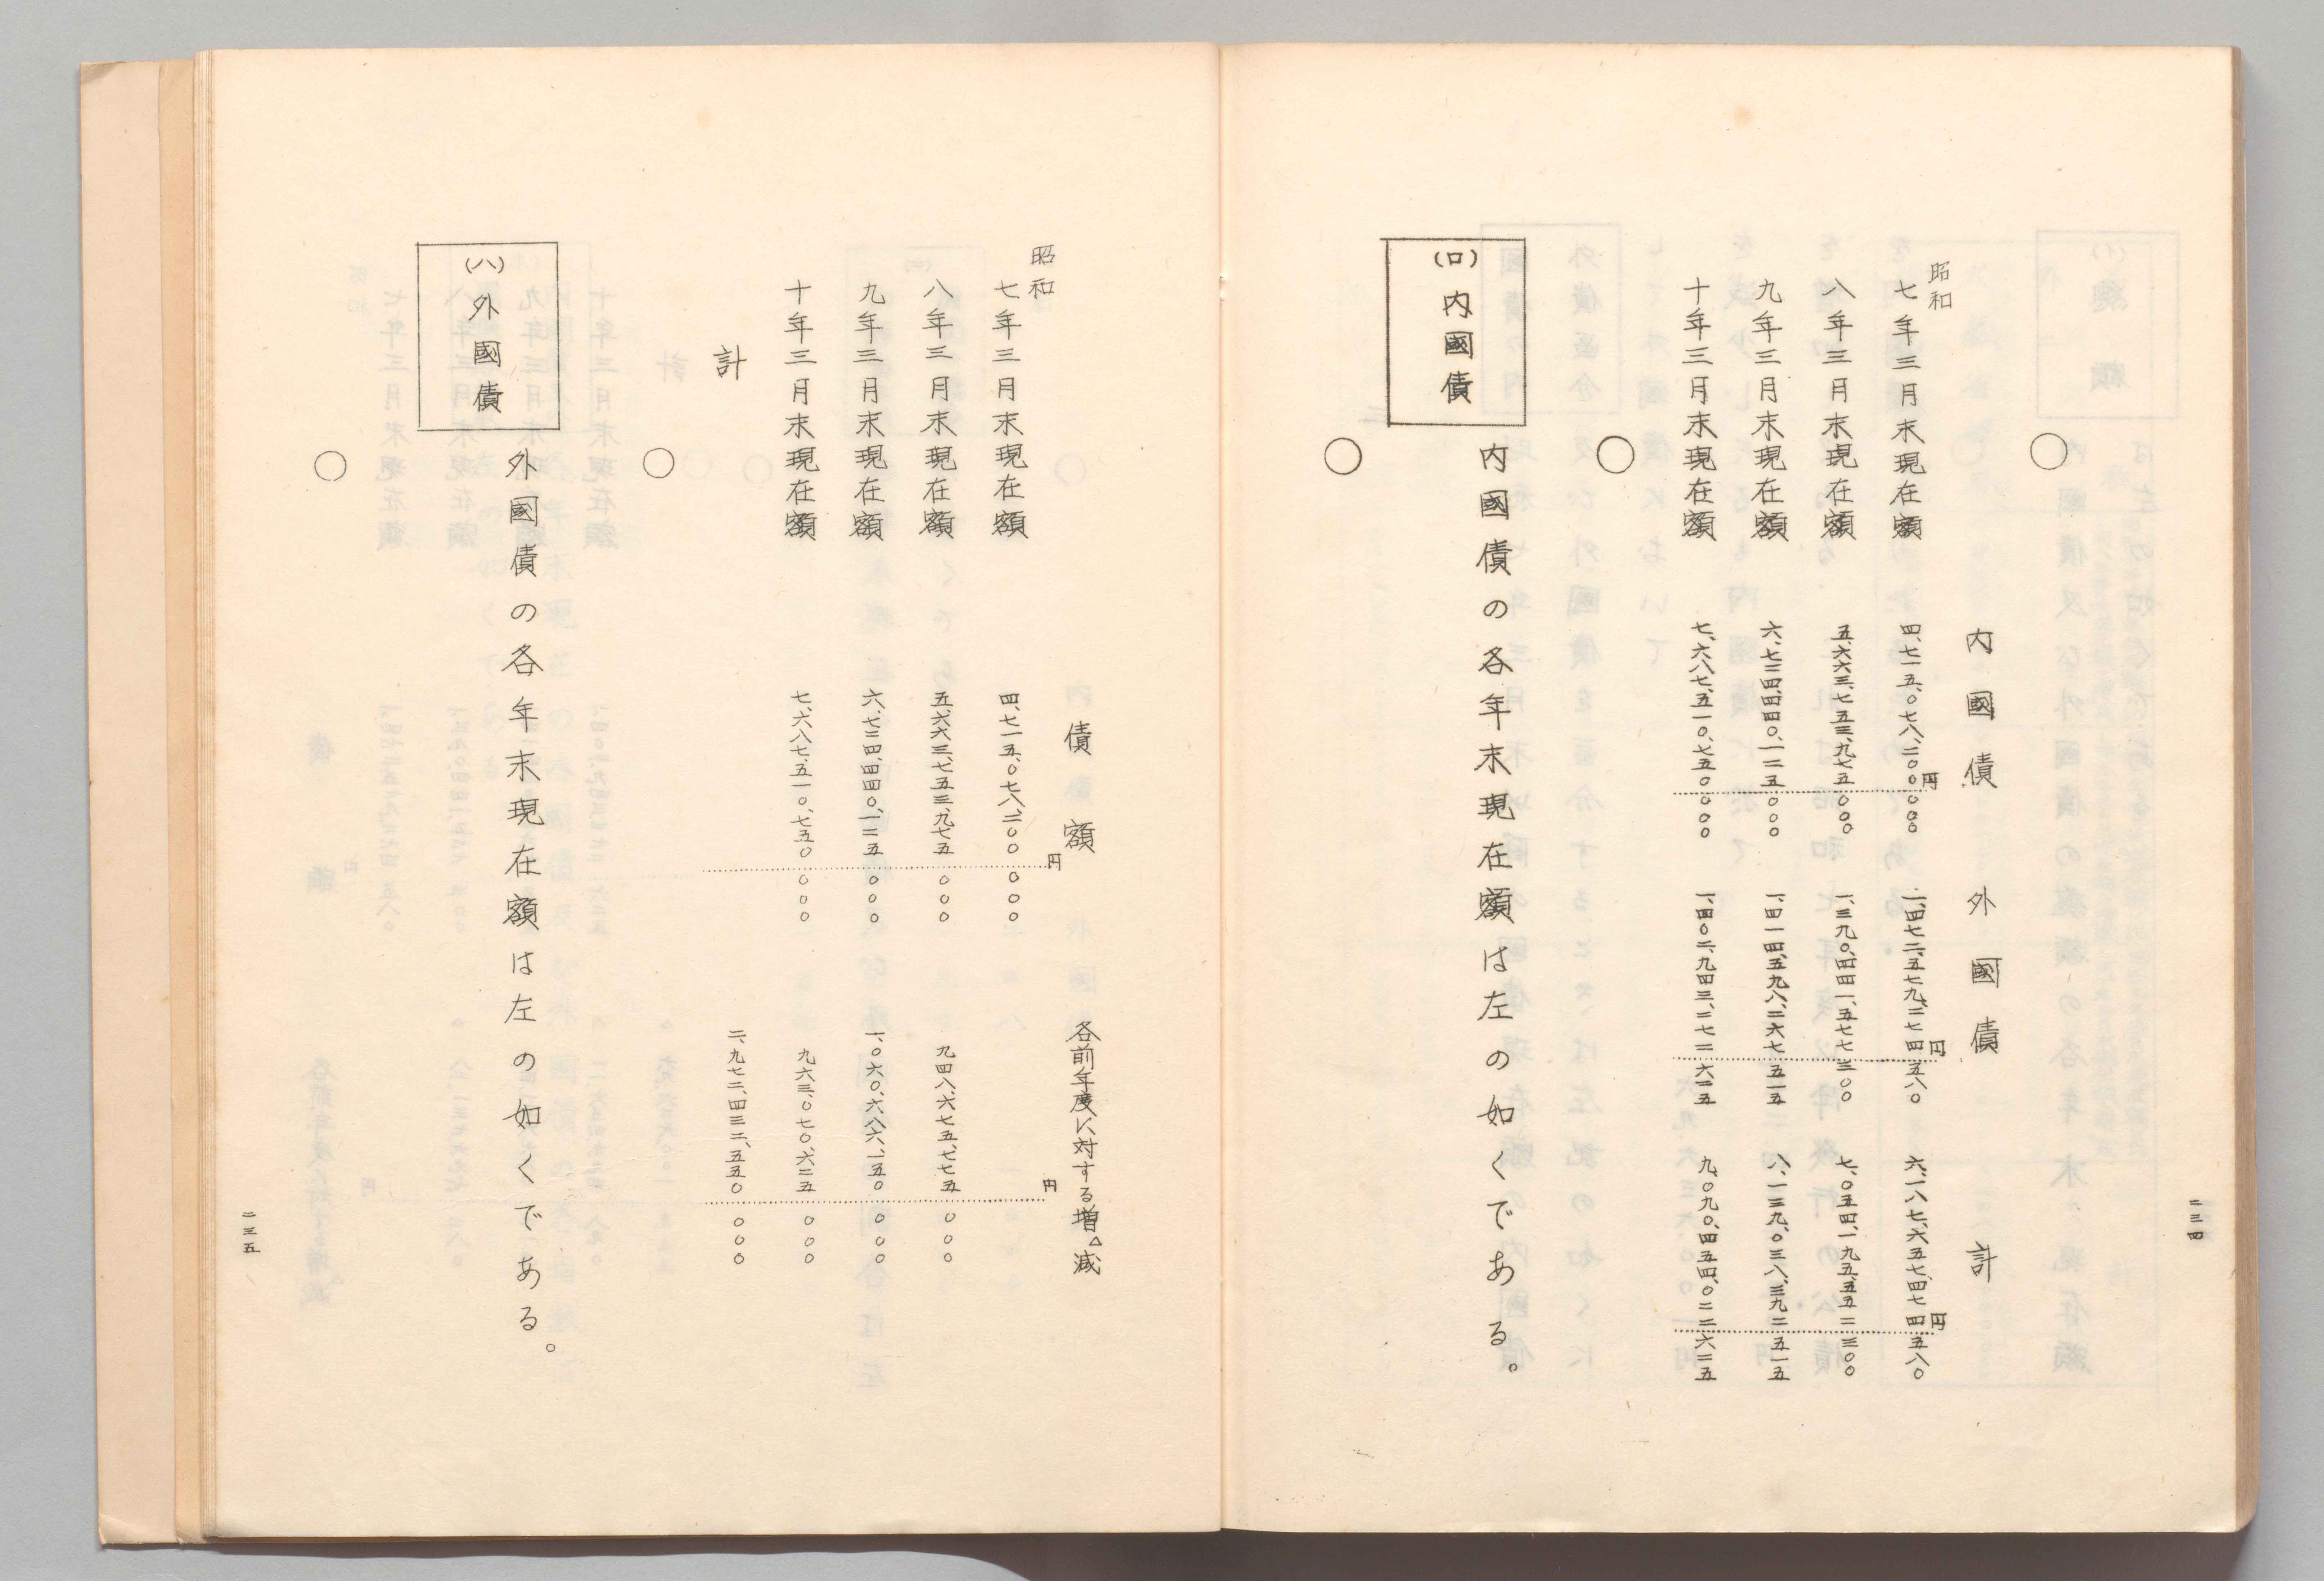 二三四
内國債　外國債　計
昭和
七年三月末現在額　四、七一五、〇七八、二〇〇円〇〇〇　一、四七二、五七九、二七四円五八〇　六、一八七、六五七、四七四円五八〇
八年三月末現在額　五、六六三、七五三、九七五〇〇〇　一、三九〇、四四一、五七七三〇〇　七、〇五四、一九五、五五二三〇〇
九年三月末現在額　六、七二四、四四〇、一二五〇〇〇　一、四一四、五九八、二六七五一五　八、一三九、〇三八、三九二五一五
十年三月末現在額　七、六八七、五一〇、七五〇〇〇〇　一、四〇二、九四三、二七二六二五　九、〇九〇、四五四、〇二二六二五
(ロ)内國債
内國債の各年末現在額は左の如くである。
債額　各前年度に対する増△減
昭和
七年三月末現在額　四、七一五、〇七八、二〇〇円〇〇〇　円
八年三月末現在額　五、六六三、七五三、九七五〇〇〇　九四八、六七五、七七五〇〇〇
九年三月末現在額　六、七二四、四四〇、一二五〇〇〇　一、〇六〇、六八六、一五〇〇〇〇
十年三月末現在額　七、六八七、五一〇、七五〇〇〇〇　九六三、〇七〇、六二五〇〇〇
計　二、九七二、四三二、五五〇〇〇〇
(ハ)外國債
外國債の各年末現在額は左の如くである。
二三五